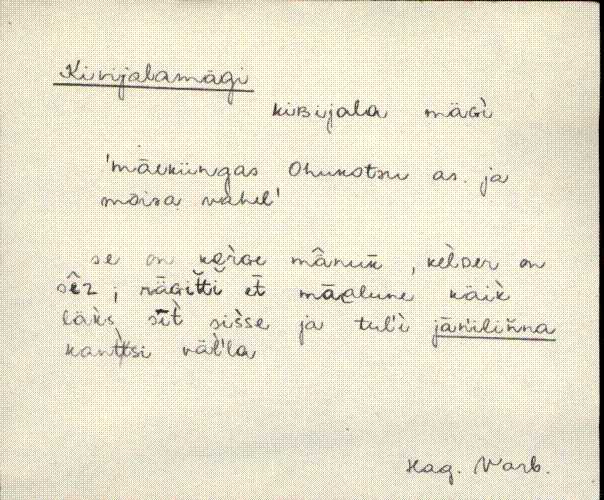 Kivijalamägi
kiBijala mäGì
'mäeküngas Ohukotsu as. ja
moisa vahel'
se on kərGe mânuk̄, kèlDer on
sêz; räɢit̆t̆i et̄ māalune käik̀
läks̀ sīt̀ sis̀se ja tuľì jāńiliǹna
kanttsi väľ'la
Hag. Varb.